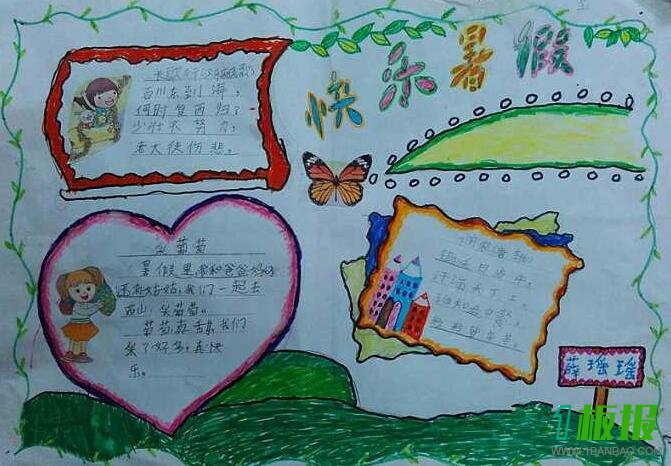 快乐暑假
长歌行(汉乐府民歌)
百川东到海，
何时复西归？
少壮不努力，
老大徒伤悲。
采葡萄
暑假里，我和爸爸妈妈
还有姑姑，我们一起去
西山，采葡萄。
葡萄真甜，我们
采了好多，真快
乐。
锄禾日当午，
汗滴禾下土。
谁知盘中餐，
粒粒皆辛苦。
薛瑶瑶
板报
WWW.1BANBAO.COM